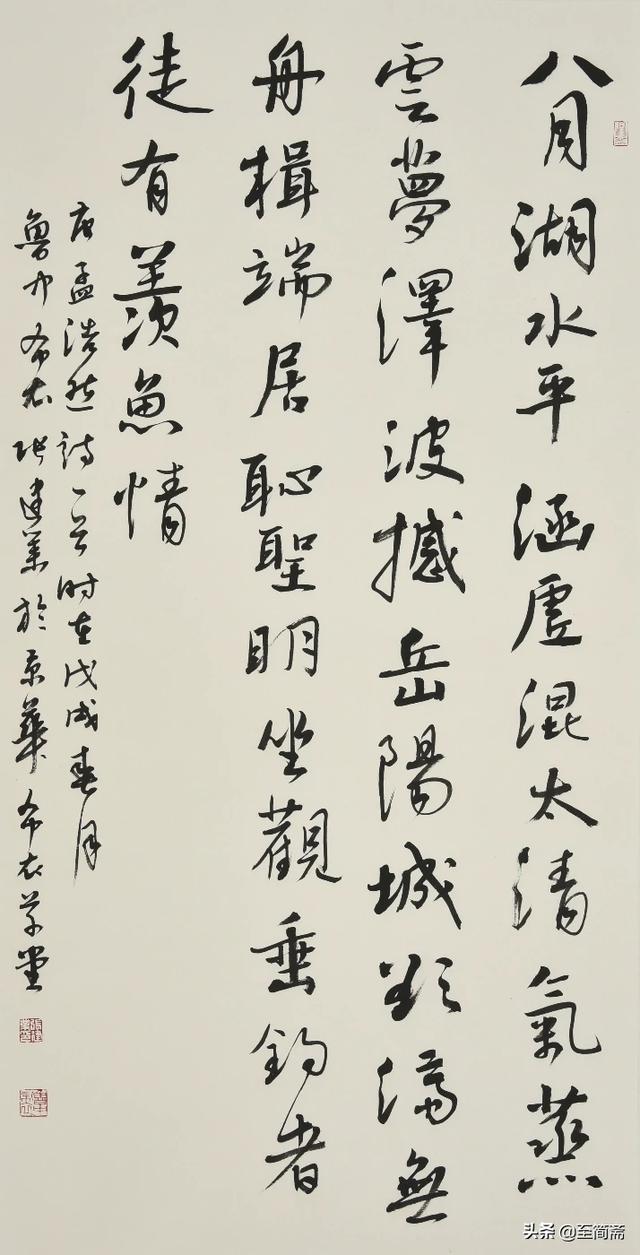 八月湖水平涵虛混太清氣蒸
雲夢澤波撼岳陽城欲濟無
舟楫端居恥聖明坐觀垂釣者
徒有羨魚情
唐孟浩然詩一首时在戊戌春月
魯中布衣张建業於京華布衣草堂
头条 @至简斋